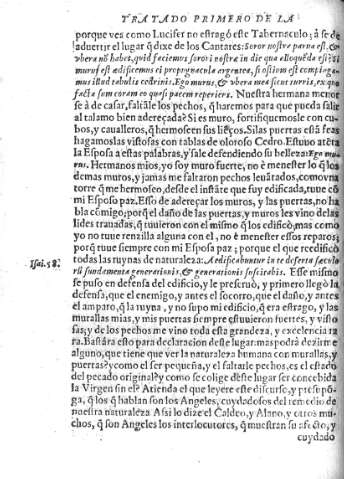 TRATADO PRIMERO DE LA
porque ves como Lucifer no estragó este Tabernaculo; â se de
aduertir el lugar q̃ dixe de los Cantares: Soror nostra parua est, &
vbera nõ habet, quid faciemus sorori nostræ in die qua alloquẽda est? Si
murus est ædificemus ei propugnacula argentea, si ostium est compinga-
mus illud tabulis cedrinis. Ego murus, & vbera mea sicut turris, ex quo
facta sum coram eo quasi pacem reperiens. Nuestra hermana menor
se â de casar, faltãle los pechos, q̃ haremos para que pueda salir
al talamo bien adereçada? Si es muro, fortifiquemosle con cu-
bos, y caualleros, q̃ hermoseen sus lieços. Si las puertas está feas
hagamoslas vistosas con tablas de oloroso Cedro. Estuuo atẽta
la Esposa a estas palabras, y sale defendiendo su belleza: Ego mu-
rus. Hermanos mios, yo soy muro fuerte, no é menester lo q̃ los
demas muros, y jamas me faltaron pechos leuãtados, como vna
torre q̃ me hermoseo, desde el instãte que fuy edificada, tuue cõ
mi Esposo paz. Esso de adereçar los muros, y las puertas, no ha
bla cõmigo; por q̃ el daño de las puertas, y muros les vino de las
lides trauadas, q̃ tuuieron con el mismo q̃ los edificò, mas como
yo no tuue renzilla alguna con el, no é menester essos reparos;
por q̃ tuue siempre con mi Esposo paz; porque el que reedificò
Isai. 58. todas las ruynas de naturaleza: Aedificabuntur in te deserta sæculo
rum fundamenta generationis, & generationis suscitabis. Esse mismo
se puso en defensa del edificio, y le preseruò, y primero llegò la
defensa, que el enemigo, y antes el socorro, que el daño, y antes
el amparo, q̃ la ruyna, y no supo mi edificio, q̃ era estrago, y las
murallas mias, y mis puertas siempre estuuieron fuertes, y visto
sas; y de los pechos me vino toda esta grandeza, y excelencia ra
ra. Bastára esto para declaracion deste lugar: mas podrà dezirme
alguno, que tiene que ver la naturaleza humana con murallas, y
puertas? y como el ser pequeña, y el faltarle pechos, es el estado
del pecado original? y como se colige deste lugar ser concebida
la Virgen sin el? Atienda el que leyere este discurso, y presupõ-
ga, q̃ los q̃ hablan son los Angeles, cuydadosos del remedio de
nuestra naturaleza Assi lo dize el Caldeo, y Alano, y otros mu-
chos, q̃ son Angeles los interlocutores, q̃ muestran su afecto, y
cuydado